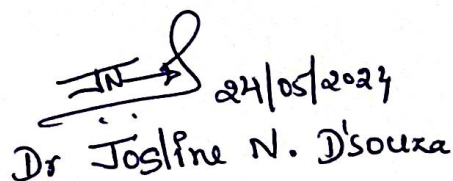 JN 24/05/2024
Dr Josline N. D'souza